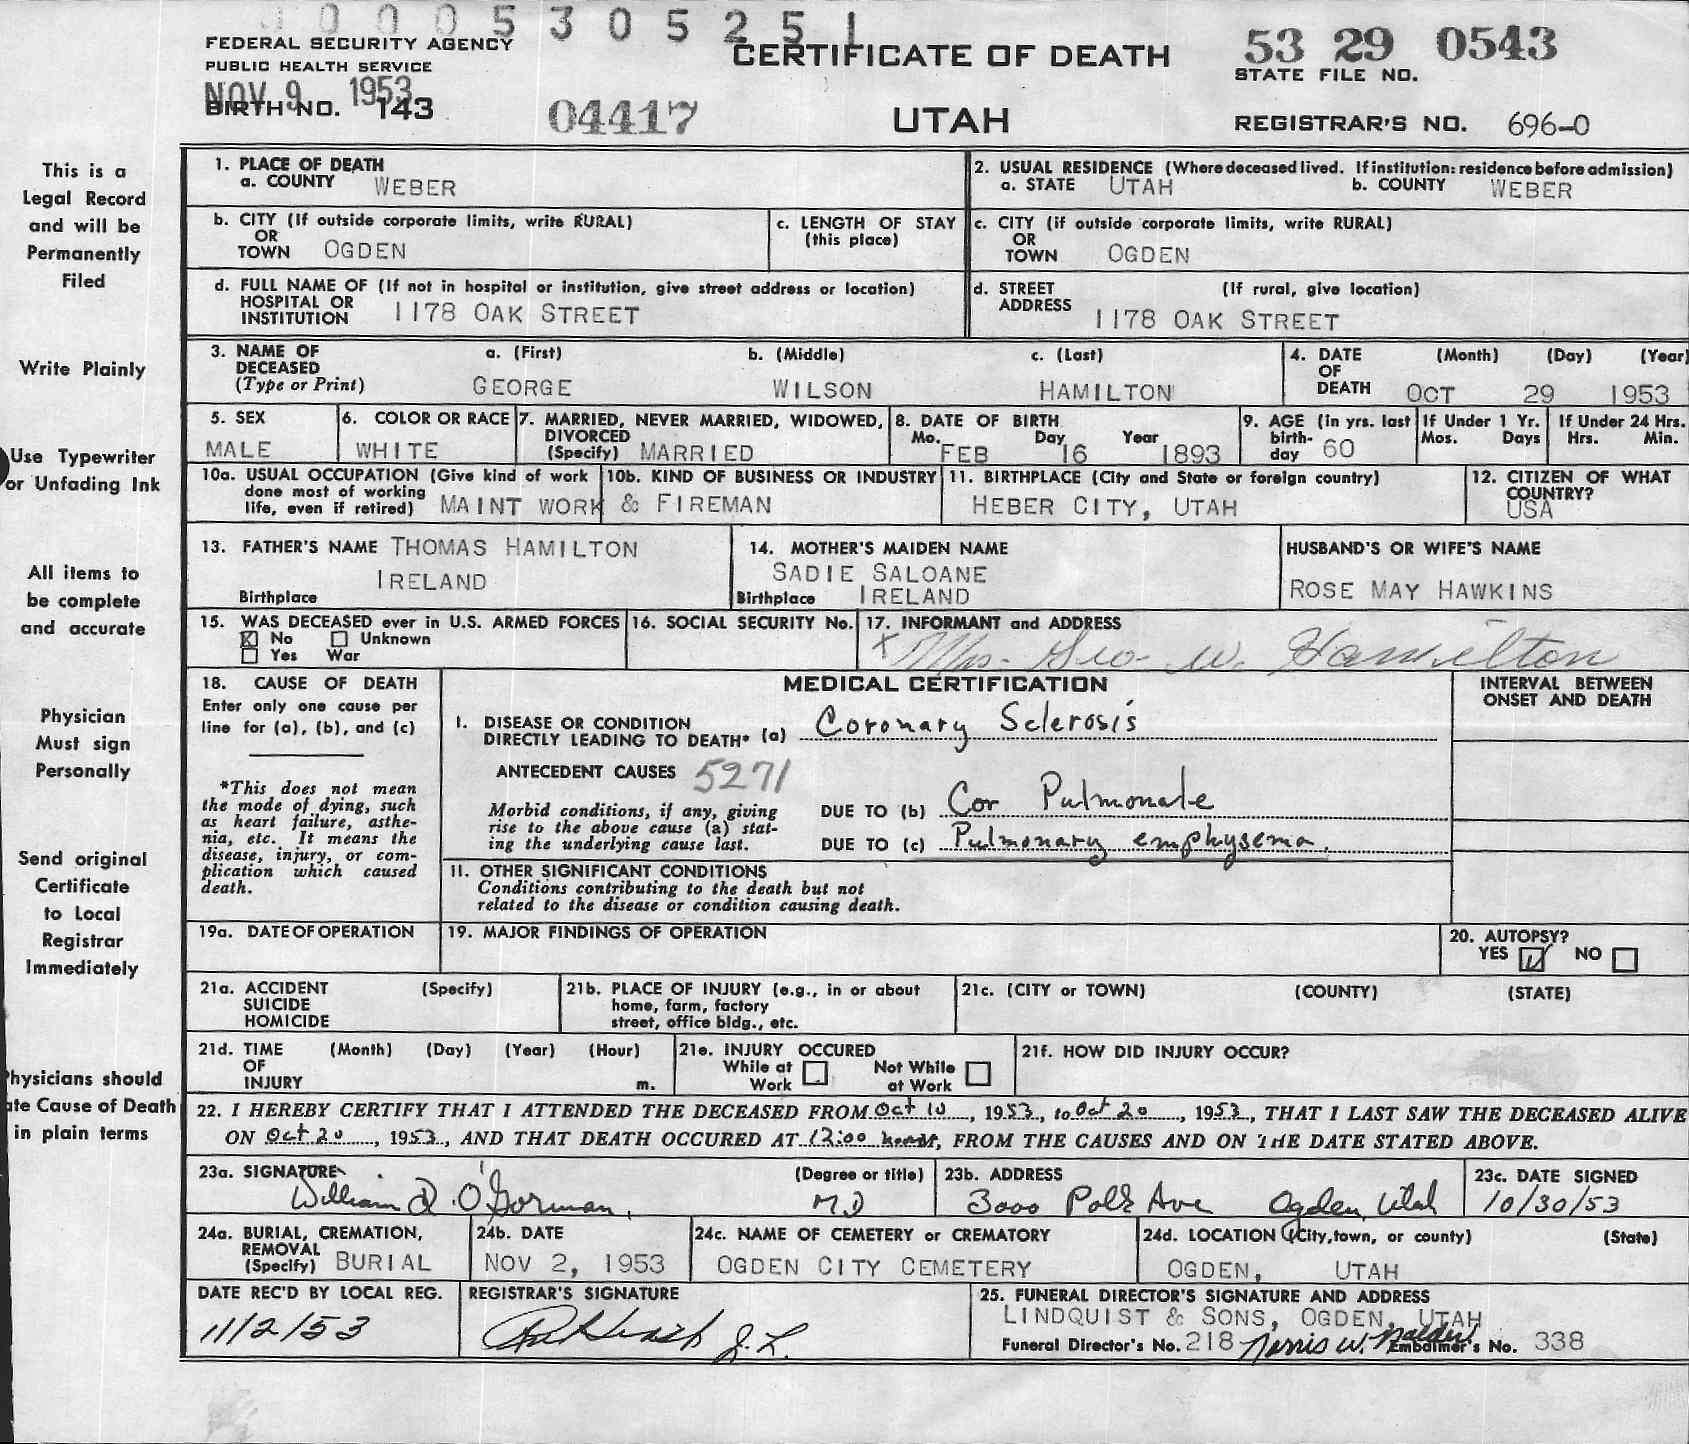 0 0 0 5 3 0 5 2 5 1
FEDERAL SECURITY AGENCY
PUBLIC HEALTH SERVICE
NOV 9 1953
BIRTH NO. 143
04417
CERTIFICATE OF DEATH
UTAH
53 29 0543
STATE FILE NO.
REGISTRAR'S NO. 696-0
This is a
Legal Record
and will be
Permanently
Filed
Write Plainly
Use Typewriter
or Unfading Ink
All items to
be complete
and accurate
Physician
Must sign
Personally
Send original
Certificate
to Local
Registrar
Immediately
Physicians should
ate Cause of Death
in plain terms
1. PLACE OF DEATH
a. COUNTY WEBER
2. USUAL RESIDENCE (Where deceased lived. If institution: residence before admission)
a. STATE UTAH b. COUNTY WEBER
b. CITY (If outside corporate limits, write RURAL)
OR
TOWN OGDEN
c. LENGTH OF STAY
(this place)
c. CITY (if outside corporate limits, write RURAL)
OR
TOWN OGDEN
d. FULL NAME OF (If not in hospital or institution, give street address or location)
HOSPITAL OR
INSTITUTION 1178 OAK STREET
d. STREET (If rural, give location)
ADDRESS
1178 OAK STREET
3. NAME OF a. (First) b. (Middle) c. (Last)
DECEASED
(Type or Print) GEORGE WILSON HAMILTON
4. DATE (Month) (Day) (Year)
OF
DEATH OCT 29 1953
5. SEX
MALE
6. COLOR OR RACE
WHITE
7. MARRIED, NEVER MARRIED, WIDOWED,
DIVORCED
(Specify) MARRIED
8. DATE OF BIRTH
Mo. Day Year
FEB 16 1893
9. AGE (in yrs. last
birth-
day 60
If Under 1 Yr.
Mos. Days
If Under 24 Hrs.
Hrs. Min.
10a. USUAL OCCUPATION (Give kind of work
done most of working
life, even if retired) MAINT WORK
10b. KIND OF BUSINESS OR INDUSTRY
& FIREMAN
11. BIRTHPLACE (City and State or foreign country)
HEBER CITY, UTAH
12. CITIZEN OF WHAT
COUNTRY?
USA
13. FATHER'S NAME THOMAS HAMILTON
IRELAND
Birthplace
14. MOTHER'S MAIDEN NAME
SADIE SALOANE
Birthplace IRELAND
HUSBAND'S OR WIFE'S NAME
ROSE MAY HAWKINS
15. WAS DECEASED ever in U.S. ARMED FORCES
No Unknown
Yes War
16. SOCIAL SECURITY No.
17. INFORMANT and ADDRESS
X Mrs. Geo. W. Hamilton
18. CAUSE OF DEATH
Enter only one cause per
line for (a), (b), and (c)
*This does not mean
the mode of dying, such
as heart failure, asthe-
nia, etc. It means the
disease, injury, or com-
plication which caused
death.
MEDICAL CERTIFICATION
INTERVAL BETWEEN
ONSET AND DEATH
I. DISEASE OR CONDITION
DIRECTLY LEADING TO DEATH* (a) Coronary Sclerosis
ANTECEDENT CAUSES 5271
Morbid conditions, if any, giving
rise to the above cause (a) stat-
ing the underlying cause last.
DUE TO (b) Cor Pulmonale
DUE TO (c) Pulmonary emphysema.
11. OTHER SIGNIFICANT CONDITIONS
Conditions contributing to the death but not
related to the disease or condition causing death.
19a. DATE OF OPERATION
19. MAJOR FINDINGS OF OPERATION
20. AUTOPSY?
YES NO
21a. ACCIDENT (Specify)
SUICIDE
HOMICIDE
21b. PLACE OF INJURY (e.g., in or about
home, farm, factory
street, office bldg., etc.
21c. (CITY or TOWN) (COUNTY) (STATE)
21d. TIME (Month) (Day) (Year) (Hour)
OF
INJURY m.
21e. INJURY OCCURED
While at Not While
Work at Work
21f. HOW DID INJURY OCCUR?
22. I HEREBY CERTIFY THAT I ATTENDED THE DECEASED FROM Oct 10, 1953, to Oct 20, 1953, THAT I LAST SAW THE DECEASED ALIVE
ON Oct 20, 1953, AND THAT DEATH OCCURED AT 12:00 M, FROM THE CAUSES AND ON THE DATE STATED ABOVE.
23a. SIGNATURE (Degree or title)
William D. O'Gorman, MD
23b. ADDRESS
3000 Polk Ave Ogden, Utah
23c. DATE SIGNED
10/30/53
24a. BURIAL, CREMATION,
REMOVAL
(Specify) BURIAL
24b. DATE
NOV 2, 1953
24c. NAME OF CEMETERY or CREMATORY
OGDEN CITY CEMETERY
24d. LOCATION (City, town, or county) (State)
OGDEN, UTAH
DATE REC'D BY LOCAL REG.
11/2/53
REGISTRAR'S SIGNATURE
J.L.
25. FUNERAL DIRECTOR'S SIGNATURE AND ADDRESS
LINDQUIST & SONS, OGDEN, UTAH
Funeral Director's No. 218 Norris W. Embalmer's No. 338